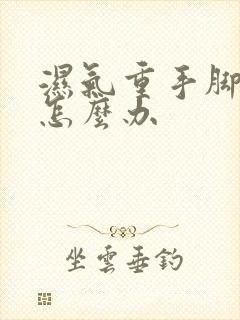 濕氣重手腳
怎麼办
坐雲垂釣